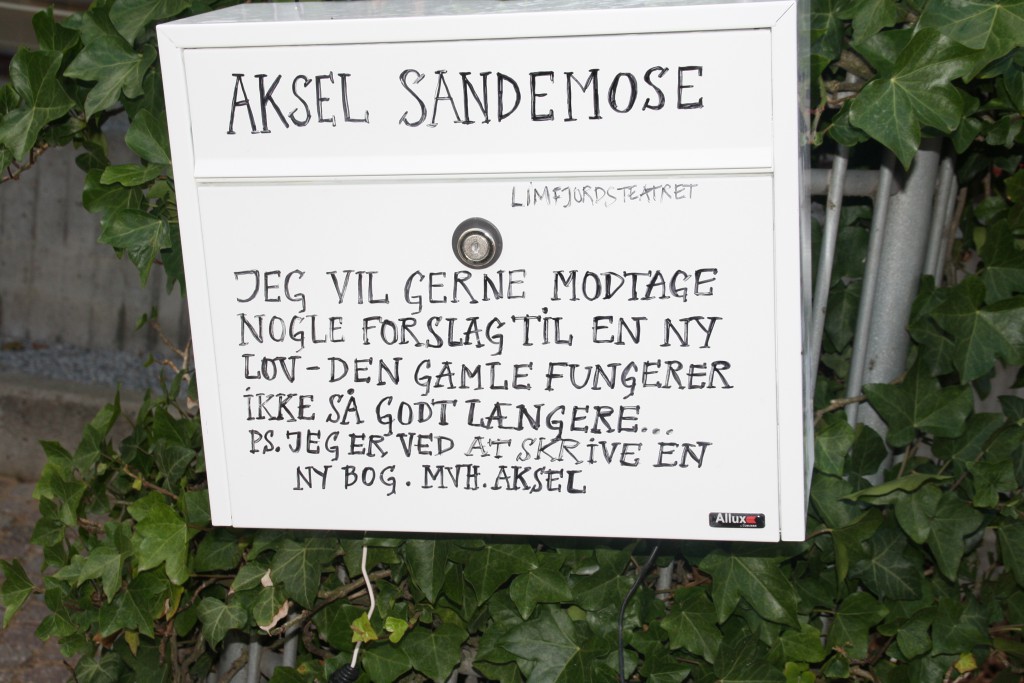 AKSEL SANDEMOSE
LIMFJORDSTEATRET
JEG VIL GERNE MODTAGE
NOGLE FORSLAG TIL EN NY
LOV - DEN GAMLE FUNGERER
IKKE SÅ GODT LÆNGERE...
PS. JEG ER VED AT SKRIVE EN
NY BOG. MVH. AKSEL
Allux